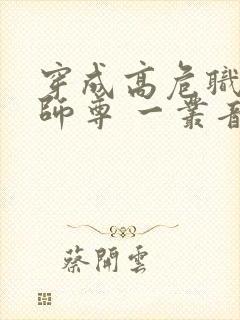 穿成高危職
師尊 一叢音
蔡開雲